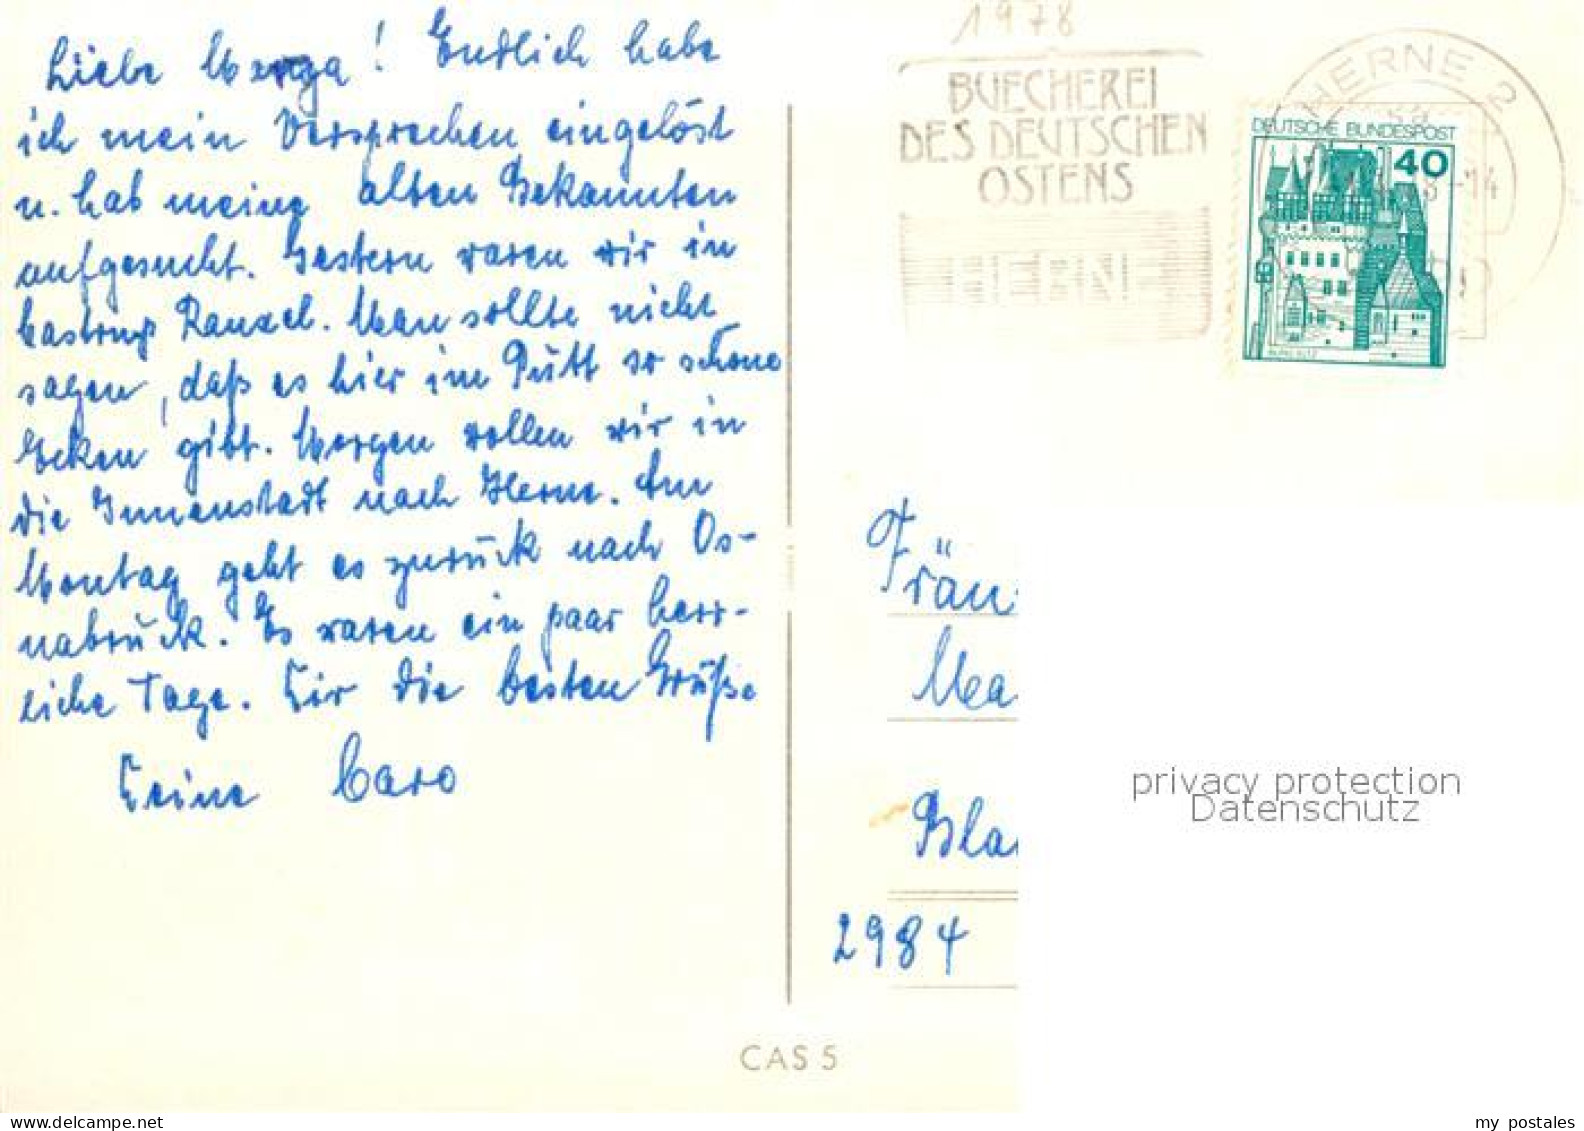 Liebe Marga! Endlich habe
ich mein Versprechen eingelöst
u. hab meine alten Bekannten
aufgesucht. Gestern waren wir in
Castrop Rauxel. Man sollte nicht
sagen, daß es hier im Pütt so schöne
Ecken gibt. Morgen wollen wir in
die Innenstadt nach Herne. Am
Montag geht es zurück nach Os-
nabrück. Es waren ein paar herr-
liche Tage. Dir die besten Grüße
Deine Caro
1978
BUECHEREI
DES DEUTSCHEN
OSTENS
HERNE
HERNE 2
DEUTSCHE BUNDESPOST
40
BURG ELTZ
-14
Fräu
Ma
Bla
2984
privacy protection
Datenschutz
CAS 5
my postales